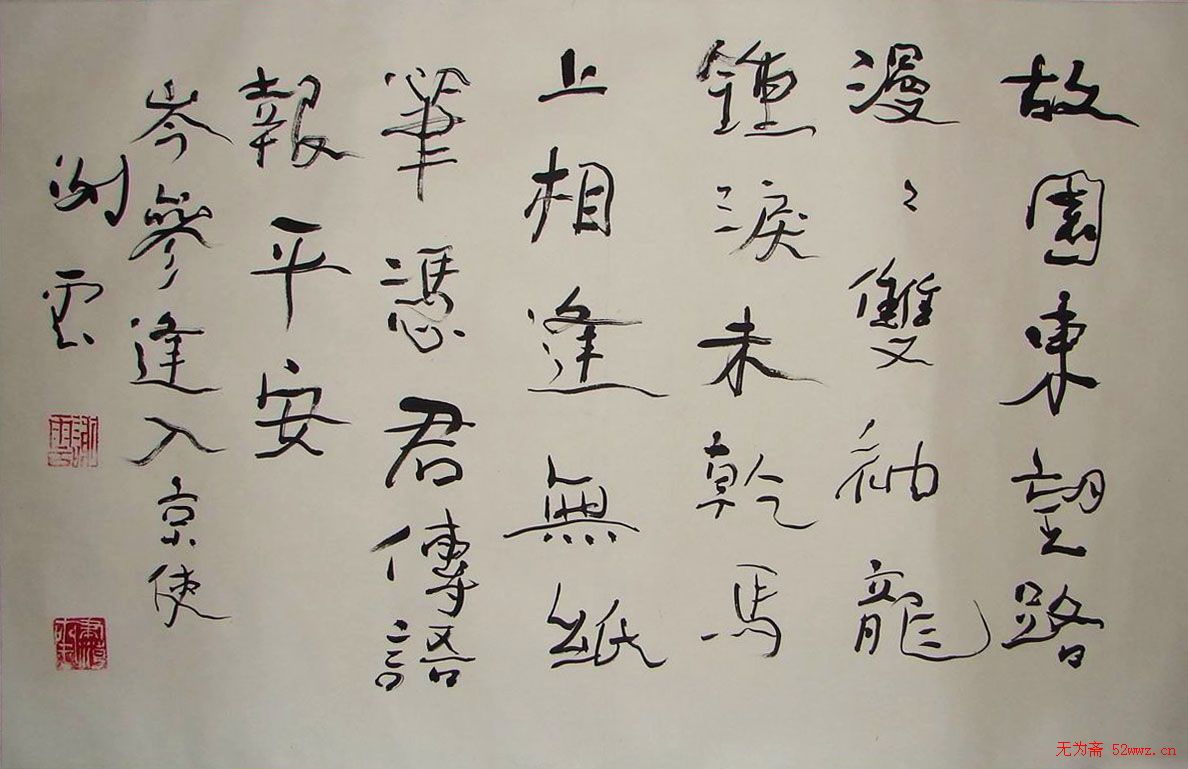 故園東望路
漫々雙袖龍
鍾淚未乾馬
上相逢無紙
筆憑君傳語
報平安
岑參逢入京使
謝雲
謝雲
无为斋 52wwz.cn